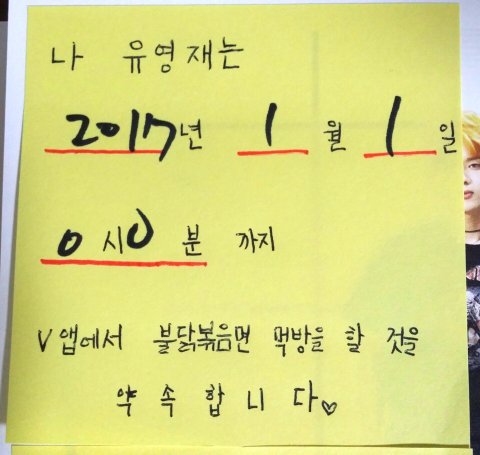 나 유영재는
2017년 1월 1일
0시0분 까지
V앱에서 불닭볶음면 먹방을 할 것을
약속합니다♡